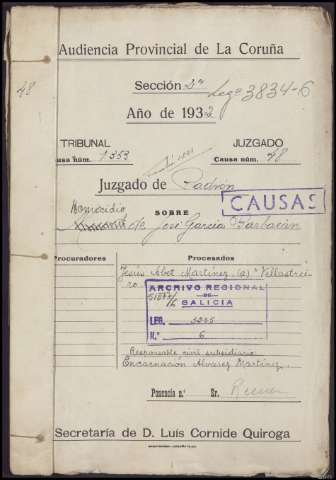 Audiencia Provincial de La Coruña
48
Sección 2ª
Leg° 3834-6
Año de 1932
TRIBUNAL
JUZGADO
ausa núm. 1353
Causa núm. 48
Juzgado de Padrón
CAUSAS
Homicidio
SOBRE
de José García Barbacán
Procuradores
Procesados
Jesús Abet Martínez (a) "Vellastrei
ro
ARCHIVO REGIONAL
DE
GALICIA
LEG.
N.° 6
Responsable civil subsidiario
Encarnación Alvarez Martínez
Ponencia n.°
Sr.
Secretaría de D. Luís Cornide Quiroga